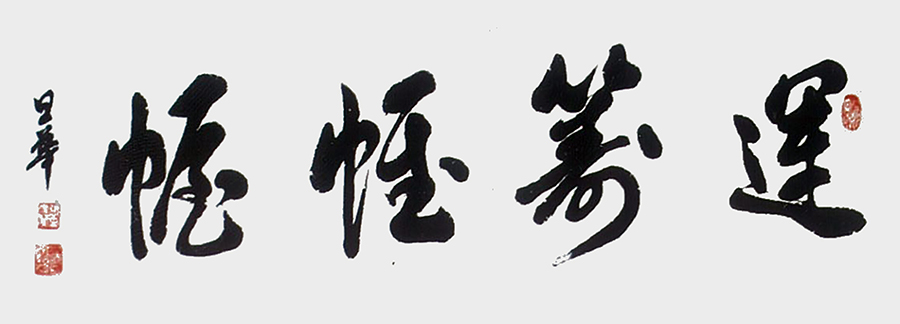 運籌帷幄
日華